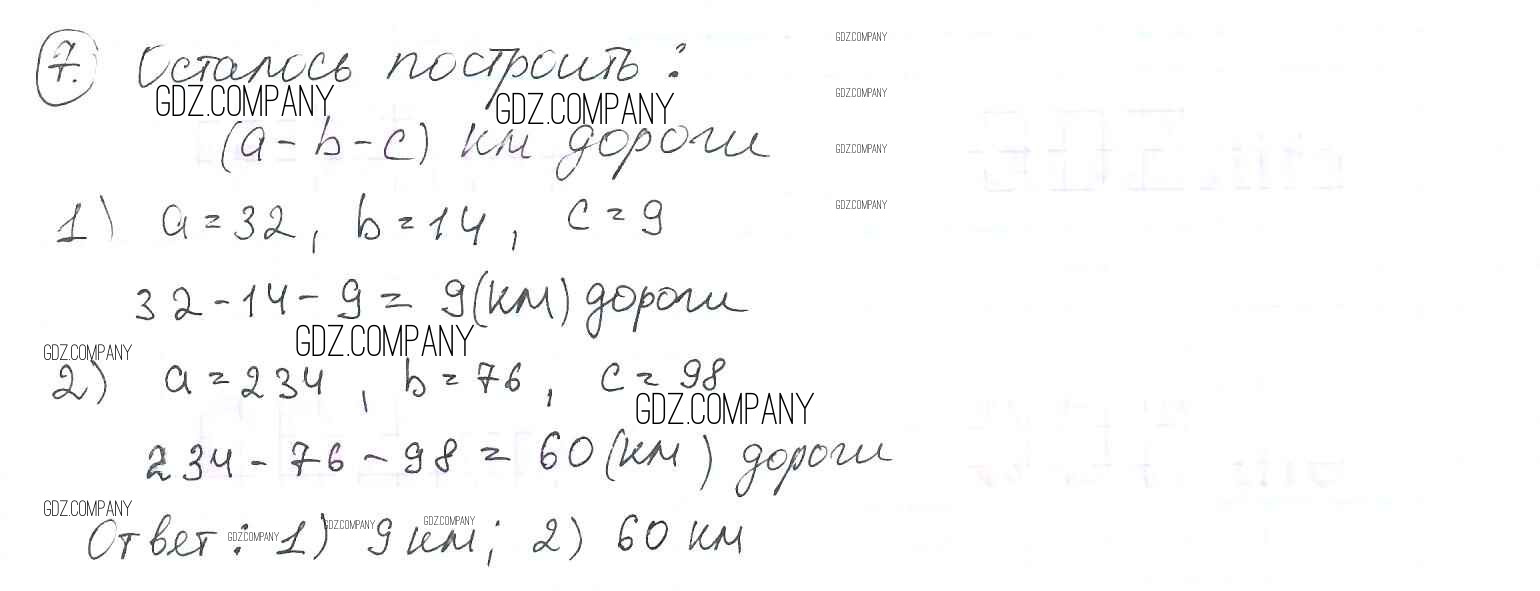 7. Осталось построить:
GDZ.COMPANY GDZ.COMPANY
(a-b-c) км дороги
1) a=32, b=14, c=9
32-14-9=9(км) дороги
GDZ.COMPANY GDZ.COMPANY
2) a=234, b=76, c=98
GDZ.COMPANY
234-76-98=60(км) дороги
GDZ.COMPANY
Ответ: 1) 9 км; 2) 60 км
GDZ.COMPANY GDZ.COMPANY GDZ.COMPANY
GDZ.COMPANY
GDZ.COMPANY
GDZ.COMPANY
GDZ.COMPANY